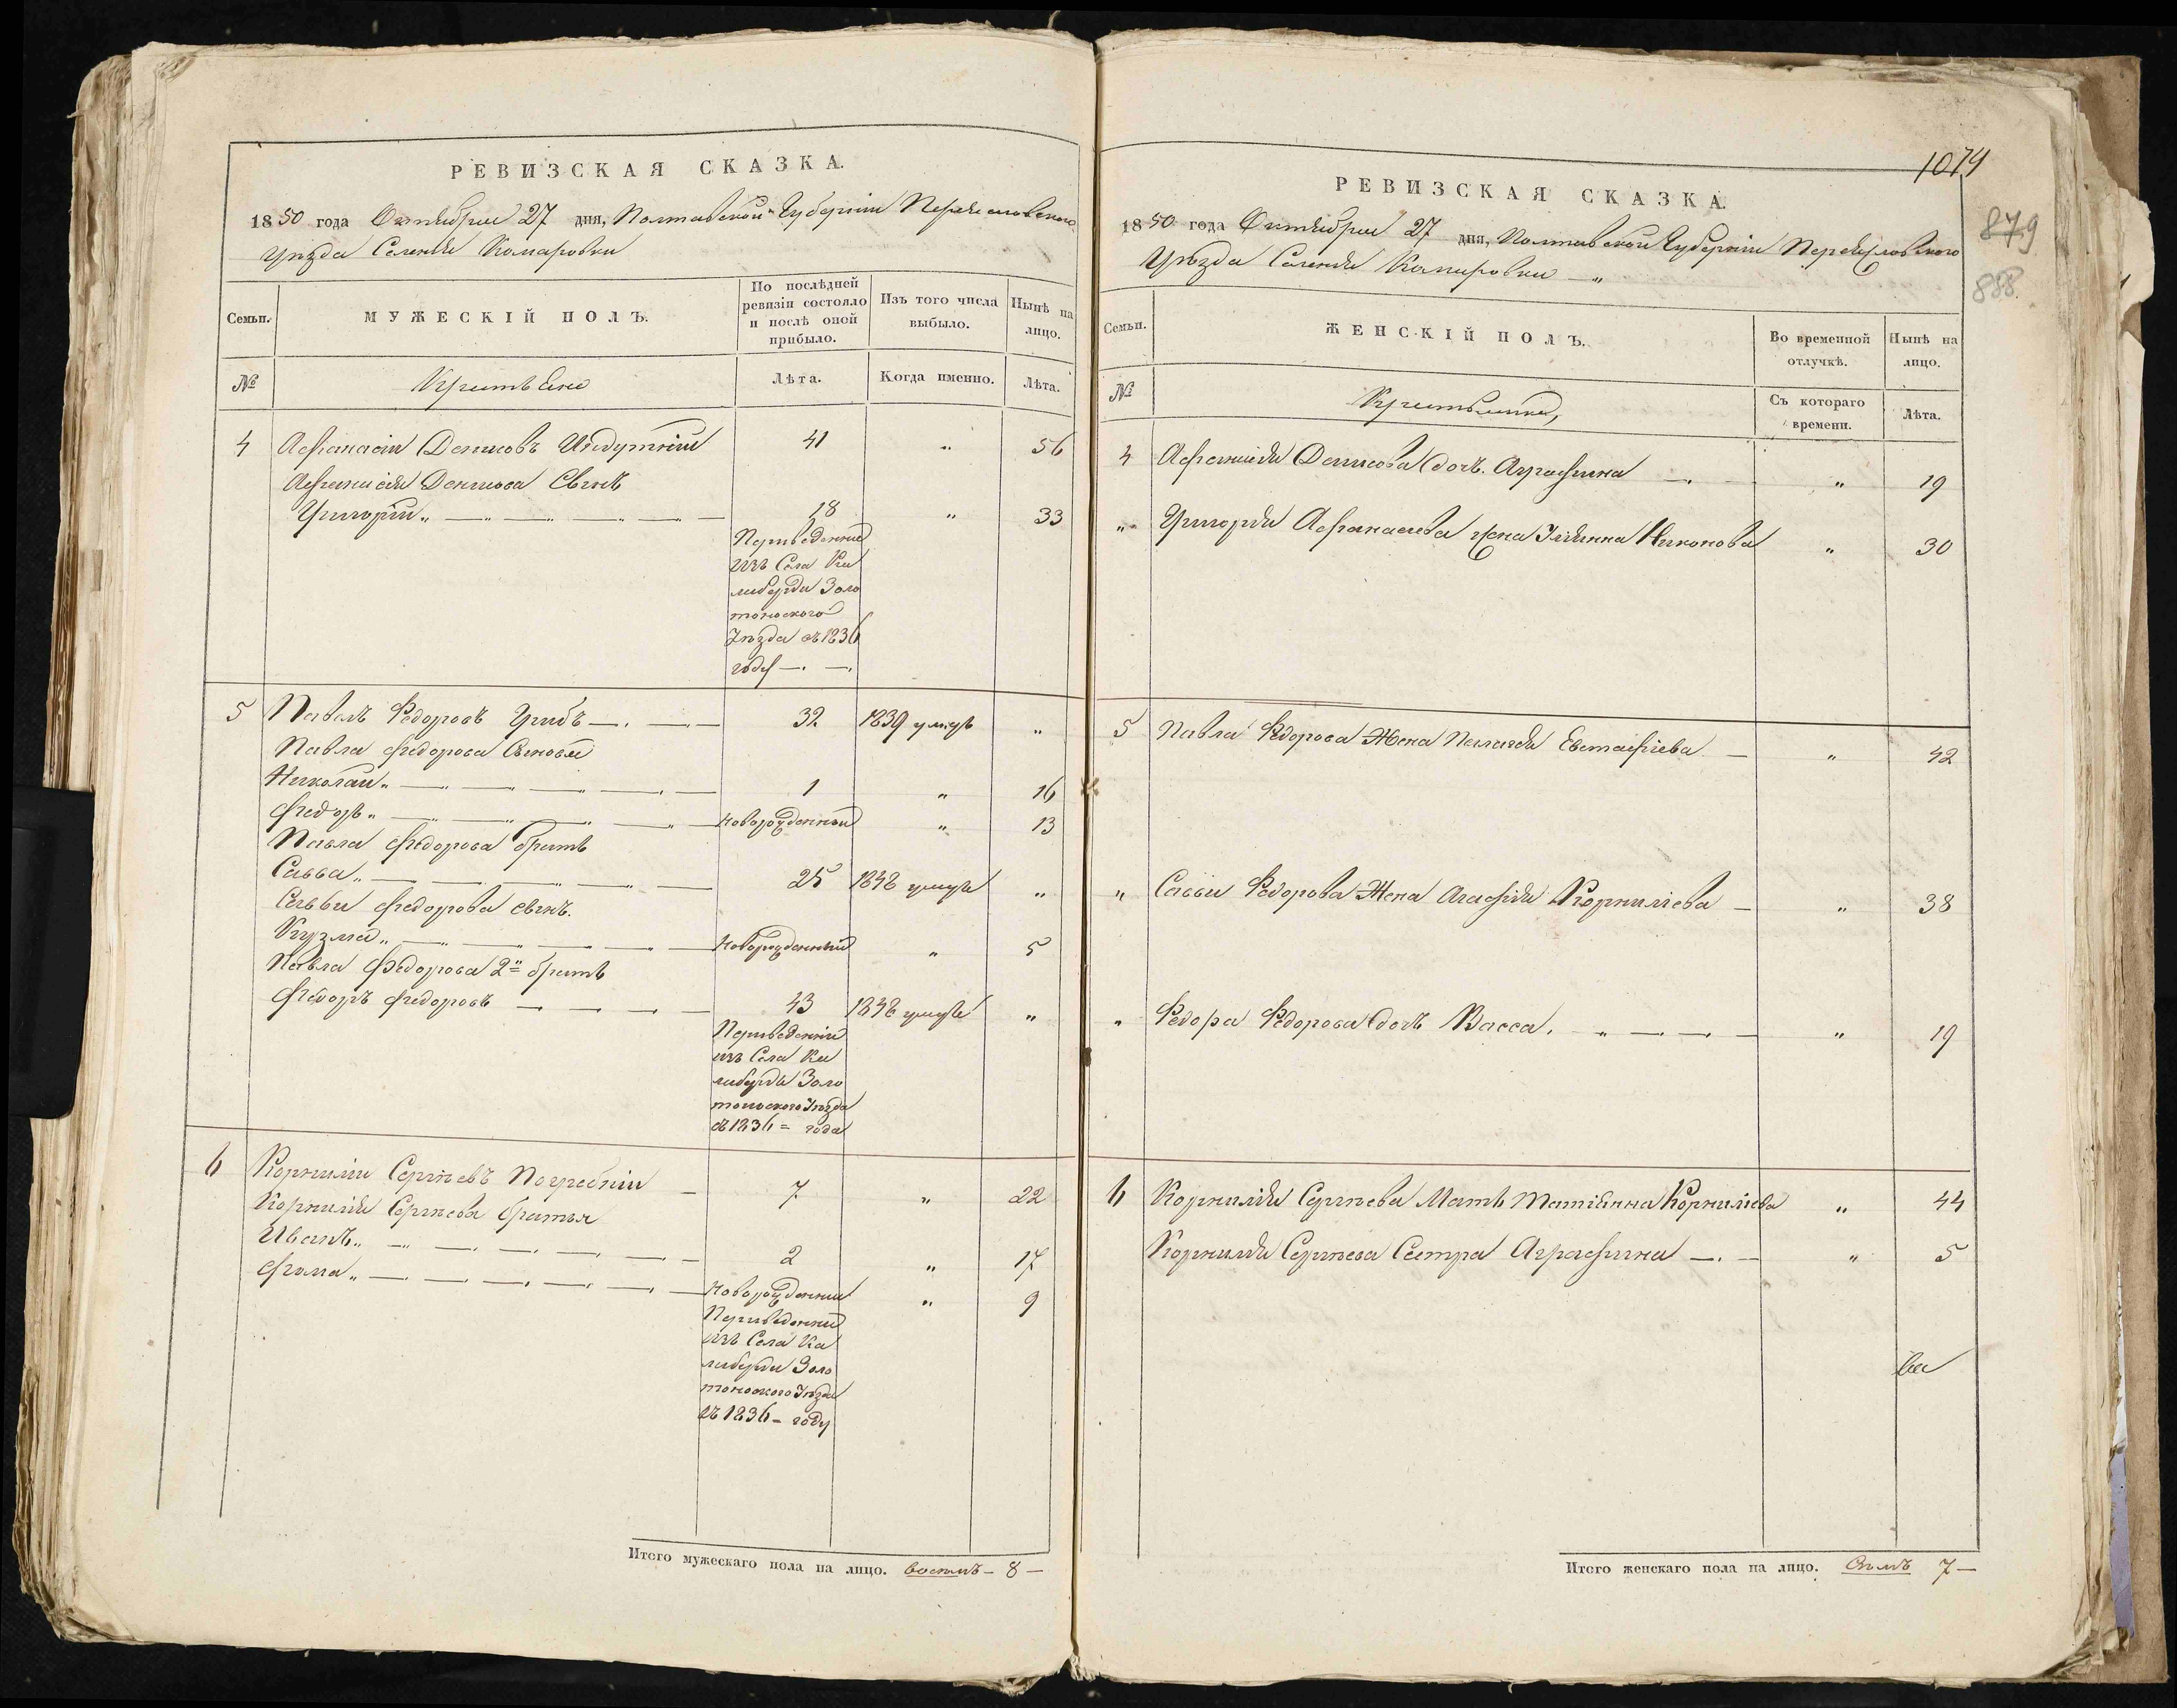 РЕВИЗСКАЯ СКАЗКА.
1850 года Октября 27 дня, Полтавской Губерніи Переяславского
Уѣзда Селенія Комаровки
Семьи.
МУЖЕСКІЙ ПОЛЪ.
По послѣдней ревизіи состояло и послѣ оной прибыло.
Изъ того числа выбыло.
Нынѣ на лицо.
№
Крестьяне
Лѣта.
Когда именно.
Лѣта.
4 Афанасій Денисовъ 41 „ 56
Афанасія Денисова Сынъ
Григорій „ 18 „ 33
Переведенны
изъ Села Ке
либерди Золо
тоноского
Уѣзда въ 1836
году
5 Павелъ Федоровъ Грибъ 32 1839 умре „
Павла Федорова Сыновья
Николай „ 1 „ 16
Федоръ „ новорожденный „ 13
Павла Федорова братъ
Савва „ 25 1848 умре „
Саввы Федорова сынъ.
Кузма „ новорожденный „ 5
Павла Федорова 2й братъ
Федоръ Федоровъ 43 1848 умре „
Переведенны
изъ Села Ке
либерды Золо
тоноского Уѣзда
въ 1836 = года
6 Корнилій Сергѣевъ Погребній 7 „ 22
Корнилія Сергѣева братья
Иванъ „ 2 „ 17
Фома „ новорожденный „ 9
Переведенны
изъ Села Ке
либерди Золо
тоноского Уѣзда
въ 1836 - году
Итого мужескаго пола на лицо. восемь - 8 -
1074
879
888.
РЕВИЗСКАЯ СКАЗКА.
1850 года Октября 27 дня, Полтавской Губерніи Переяславского
Уѣзда Селенія Комаровки „
Семьи.
ЖЕНСКІЙ ПОЛЪ.
Во временной отлучкѣ.
Нынѣ на лицо.
№
Крестьянки,
Съ котораго времени.
Лѣта.
4 Афанасія Денисова дочь Аграфина „ 19
„ Григорія Афанасіева жена Никонова „ 30
5 Павла Федорова Жена Пелагія Евстафіева „ 42
„ Саввы Федорова Жена Агафія Корниліева „ 38
„ Федора Федорова дочь Васса. „ 19
6 Корнилія Сергѣева Мать Татіанна Корниліева „ 44
Корнилія Сергѣева Сестра Аграфина „ 5
Итого женскаго пола на лицо. Семь 7 -